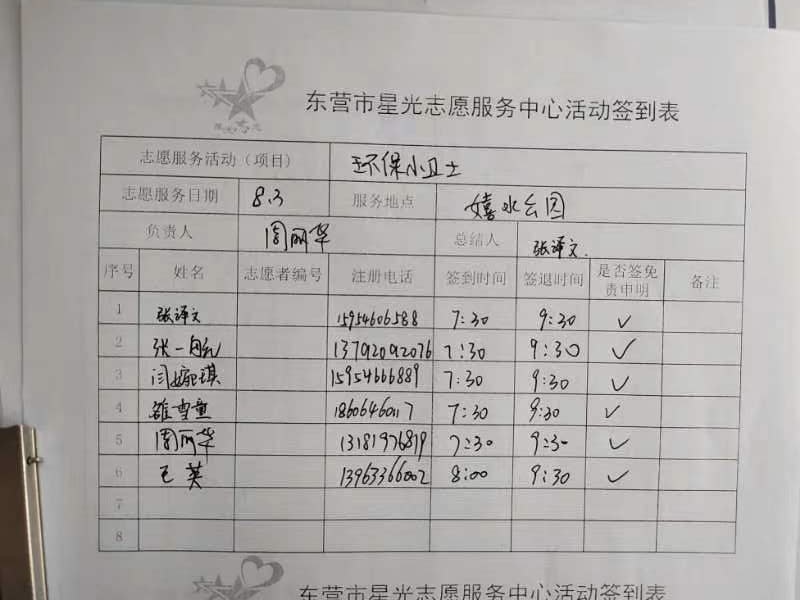 东营市星光志愿服务中心活动签到表
志愿服务活动（项目） 环保小卫士
志愿服务日期 8.3 服务地点 嬉水公园
负责人 周丽华 总结人 张译文.
序号 姓名 志愿者编号 注册电话 签到时间 签退时间 是否签免责申明 备注
1 张译文 15954606588 7:30 9:30 ✓
2 张一 13792092076 7:30 9:30 ✓
3 闫婉琪 15954666889 7:30 9:30 ✓
4 18606460117 7:30 9:30 ✓
5 周丽华 13181976819 7:30 9:30 ✓
6 王英 13963366002 8:00 9:30 ✓
7
8
东营市星光志愿服务中心活动签到表